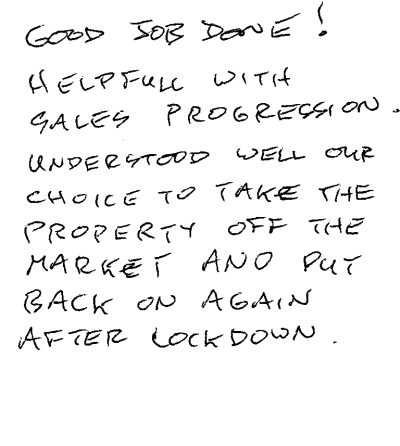 GOOD JOB DONE!
HELPFULL WITH
SALES PROGRESSION.
UNDERSTOOD WELL OUR
CHOICE TO TAKE THE
PROPERTY OFF THE
MARKET AND PUT
BACK ON AGAIN
AFTER LOCKDOWN.